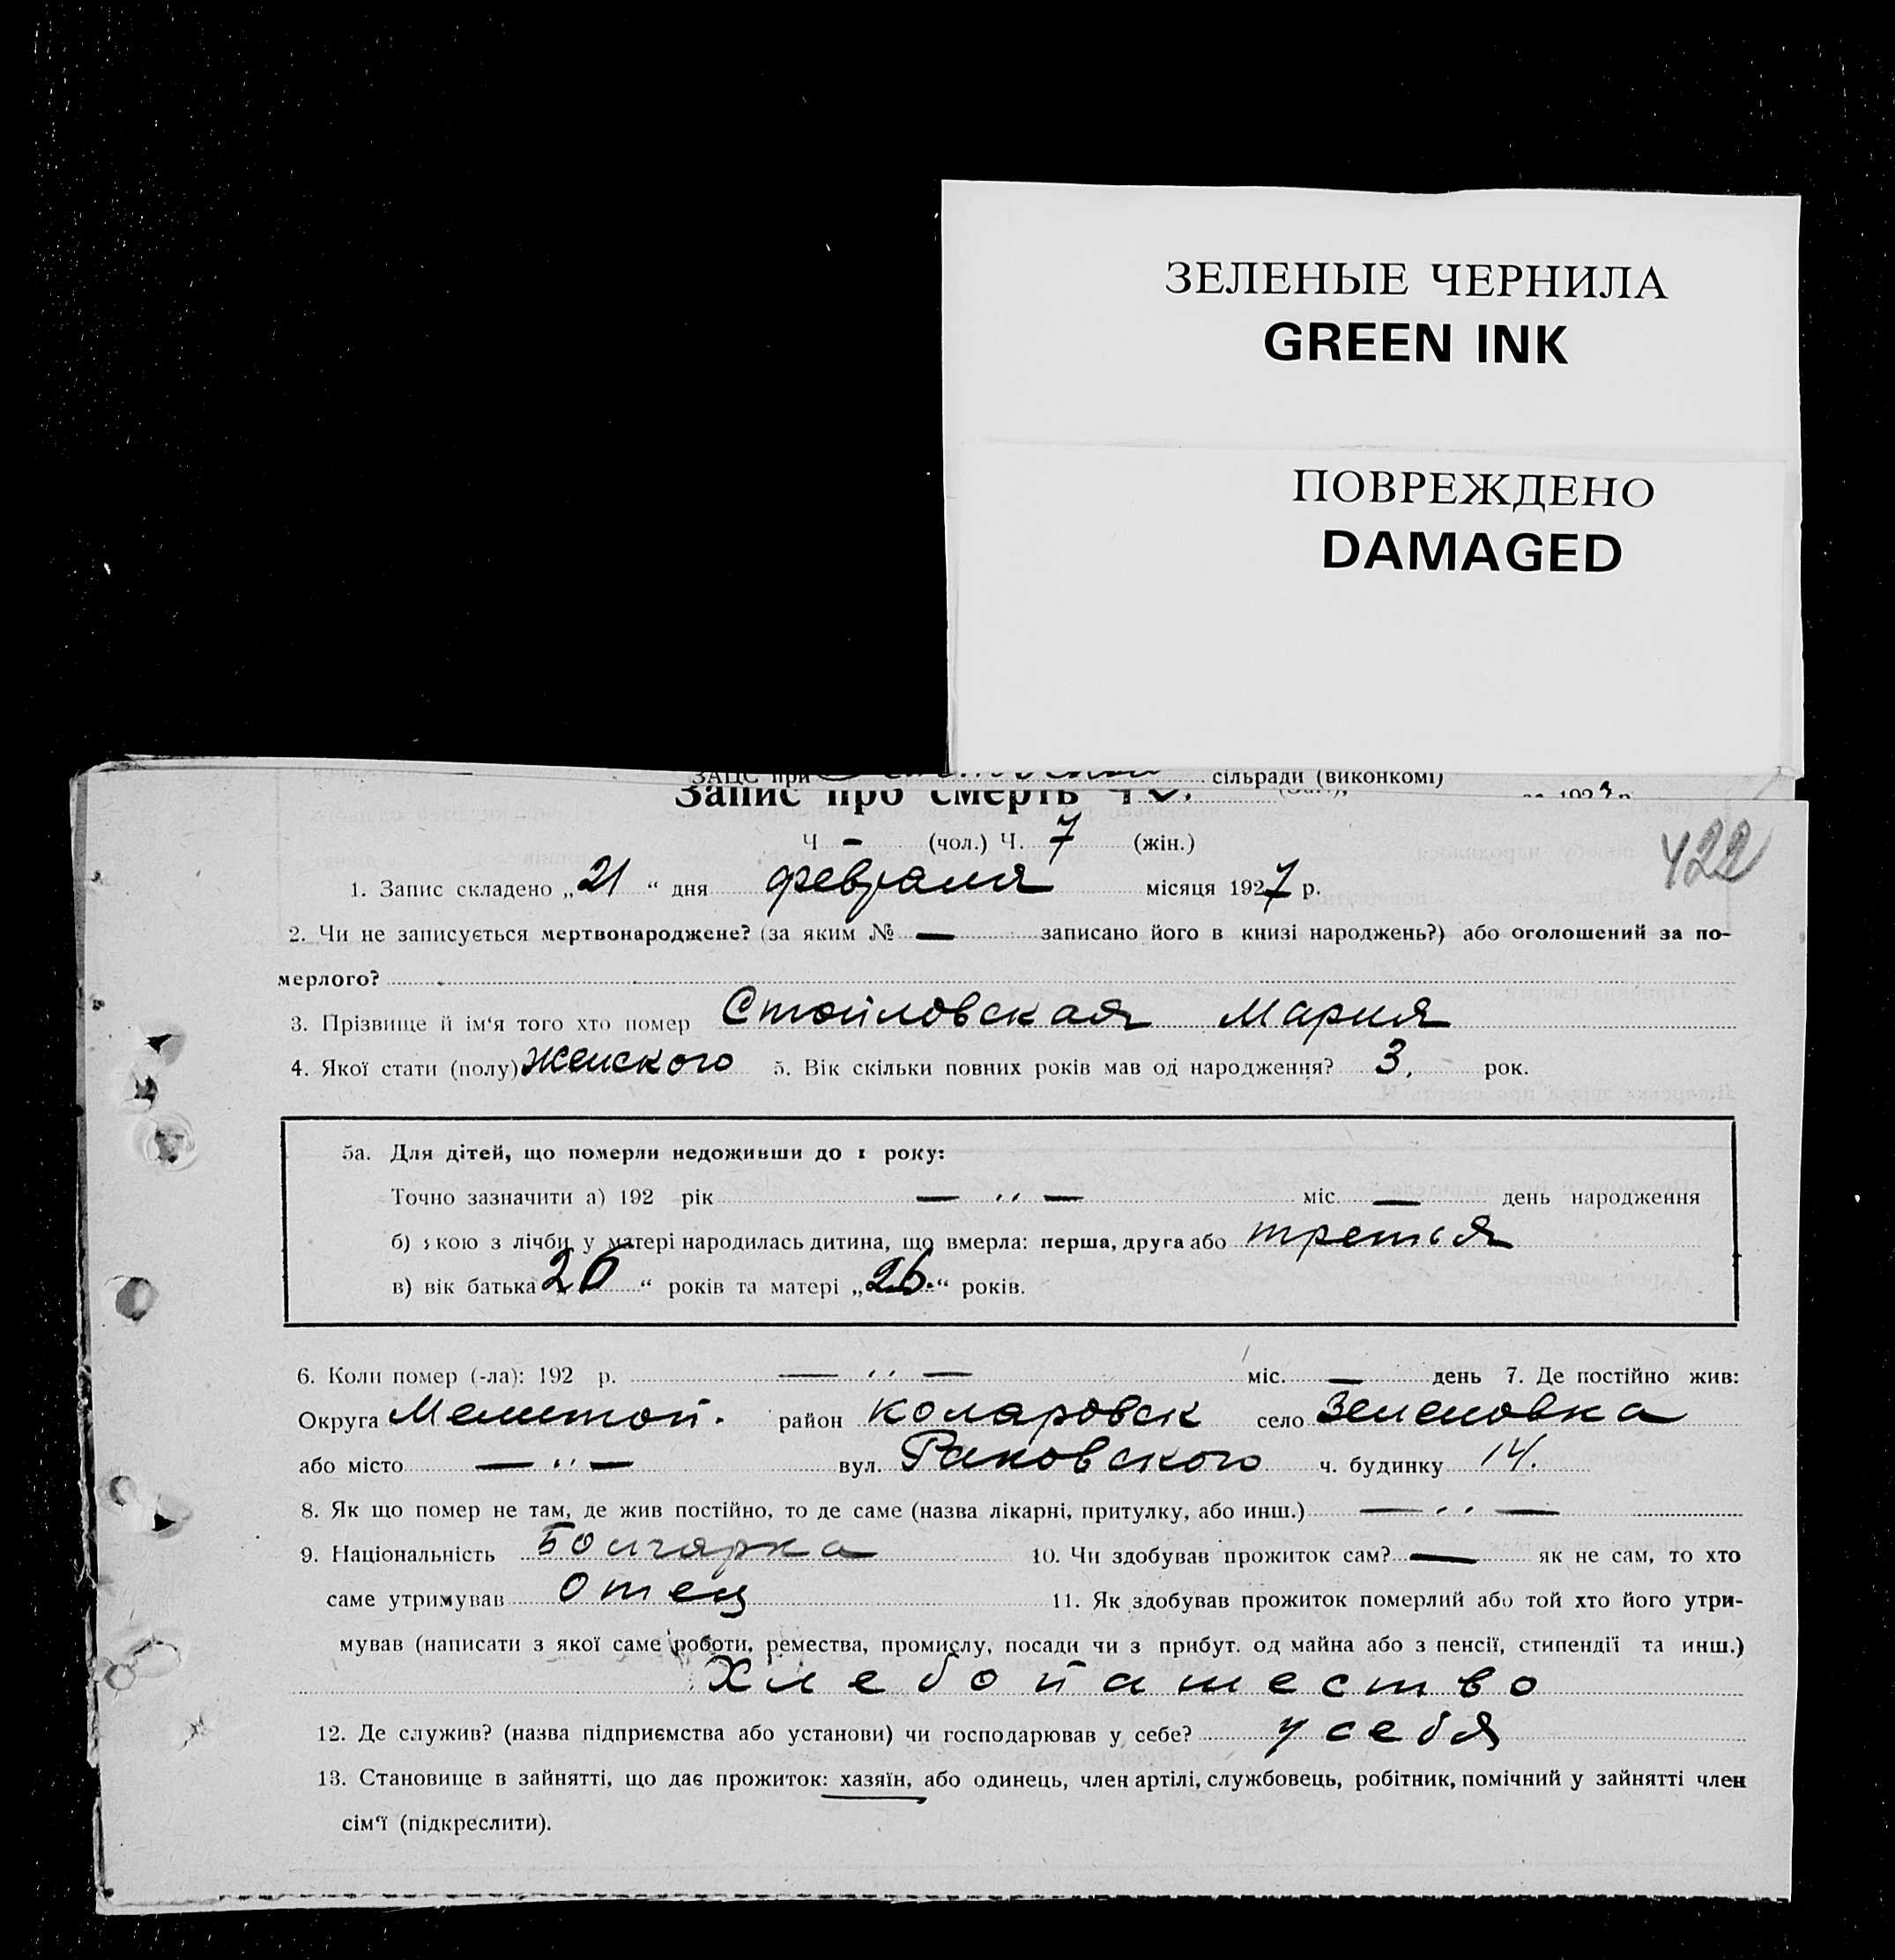 ЗЕЛЕНЫЕ ЧЕРНИЛА
GREEN INK
ПОВРЕЖДЕНО
DAMAGED
ЗАЦС при сільради (виконкомі)
Запис про смерть Ч
192 р.
422
Ч — (чол.) Ч. 7 (жін.)
1. Запис складено „21“ дня февраля місяця 1927 р.
2. Чи не записується мертвонароджене? (за яким № — записано його в книзі народжень?) або оголошений за по-
мерлого?
3. Прізвище й ім‘я того хто помер Стойловская Мария
4. Якої стати (полу) Женского 5. Вік скільки повних років мав од народження? 3, рок.
5а. Для дітей, що померли недоживши до 1 року:
Точно зазначити а) 192 рік — ,, — міс. — день народження
б) якою з лічби у матері народилась дитина, що вмерла: перша, друга або третья
в) вік батька 26 “ років та матері „26.“ років.
6. Коли помер (-ла): 192 р. — ,, — міс. — день 7. Де постійно жив:
Округа Мелитоп. район Коларовск село Зеленовка
або місто — ,, — вул. Раковского ч. будинку 14.
8. Як що помер не там, де жив постійно, то де саме (назва лікарні, притулку, або инш.) — ,, —
9. Національність Болгарка 10. Чи здобував прожиток сам? — як не сам, то хто
саме утримував отец 11. Як здобував прожиток померлий або той хто його утри-
мував (написати з якої саме роботи, ремества, промислу, посади чи з прибут. од майна або з пенсії, стипендії та инш.)
Хлебопашество
12. Де служив? (назва підприємства або установи) чи господарював у себе? у себя
13. Становище в зайнятті, що дає прожиток: хазяїн, або одинець, член артілі, службовець, робітник, помічний у зайнятті член
сім‘ї (підкреслити).